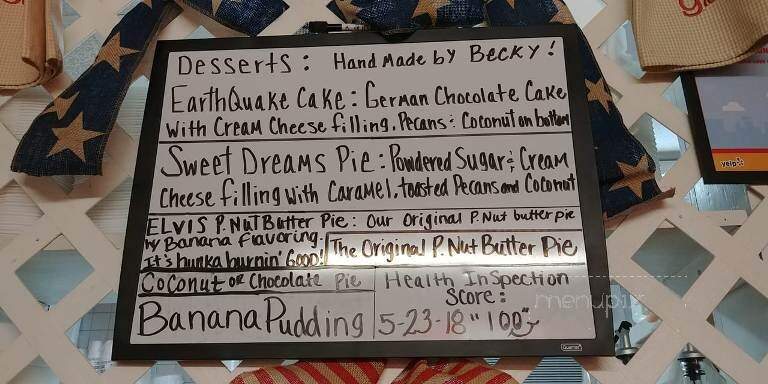 Desserts: Hand Made by Becky!
EarthQuake Cake: German Chocolate Cake
With Cream Cheese filling, Pecans & Coconut on bottom
Sweet Dreams Pie: Powdered Sugar & Cream
Cheese filling with Caramel, toasted Pecans and Coconut
ELVIS P. NuT Butter Pie: Our Original P. Nut butter pie
w/ Banana flavoring.
It's hunka burnin' Good!
The Original P. Nut Butter Pie
Coconut or Chocolate Pie
Banana Pudding
Health Inspection
Score:
5-23-18 "100"
menupix
yelp
Quartet